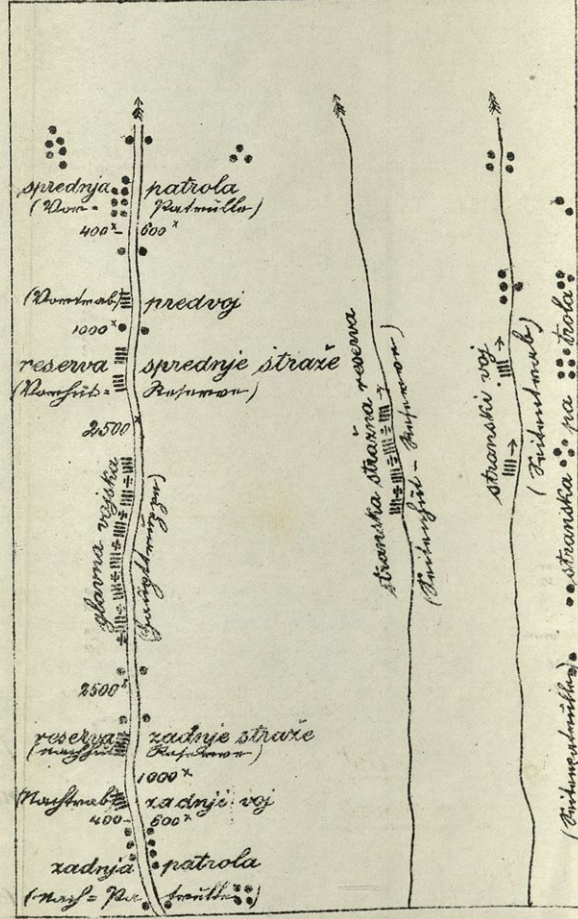 sprednja patrola
(Vor- Patrülle)
400ˣ- 600ˣ
(Vortrab) predvoj
1000ˣ
reserva sprednje straže
(Vorhüt- Reserve)
2500ˣ
glavna vojska
2500ˣ
reserva zadnje straže
(Nachhüt Reserve)
1000ˣ
(Nachtrab) zadnji voj
400- 600ˣ
zadnja patrola
(Nach= Patrülle)
stranska stražna reserva
(Seitenhüt- Reserve)
stranski voj
(Seitentrab)
stranska patrola
(Seitenpatrülle)